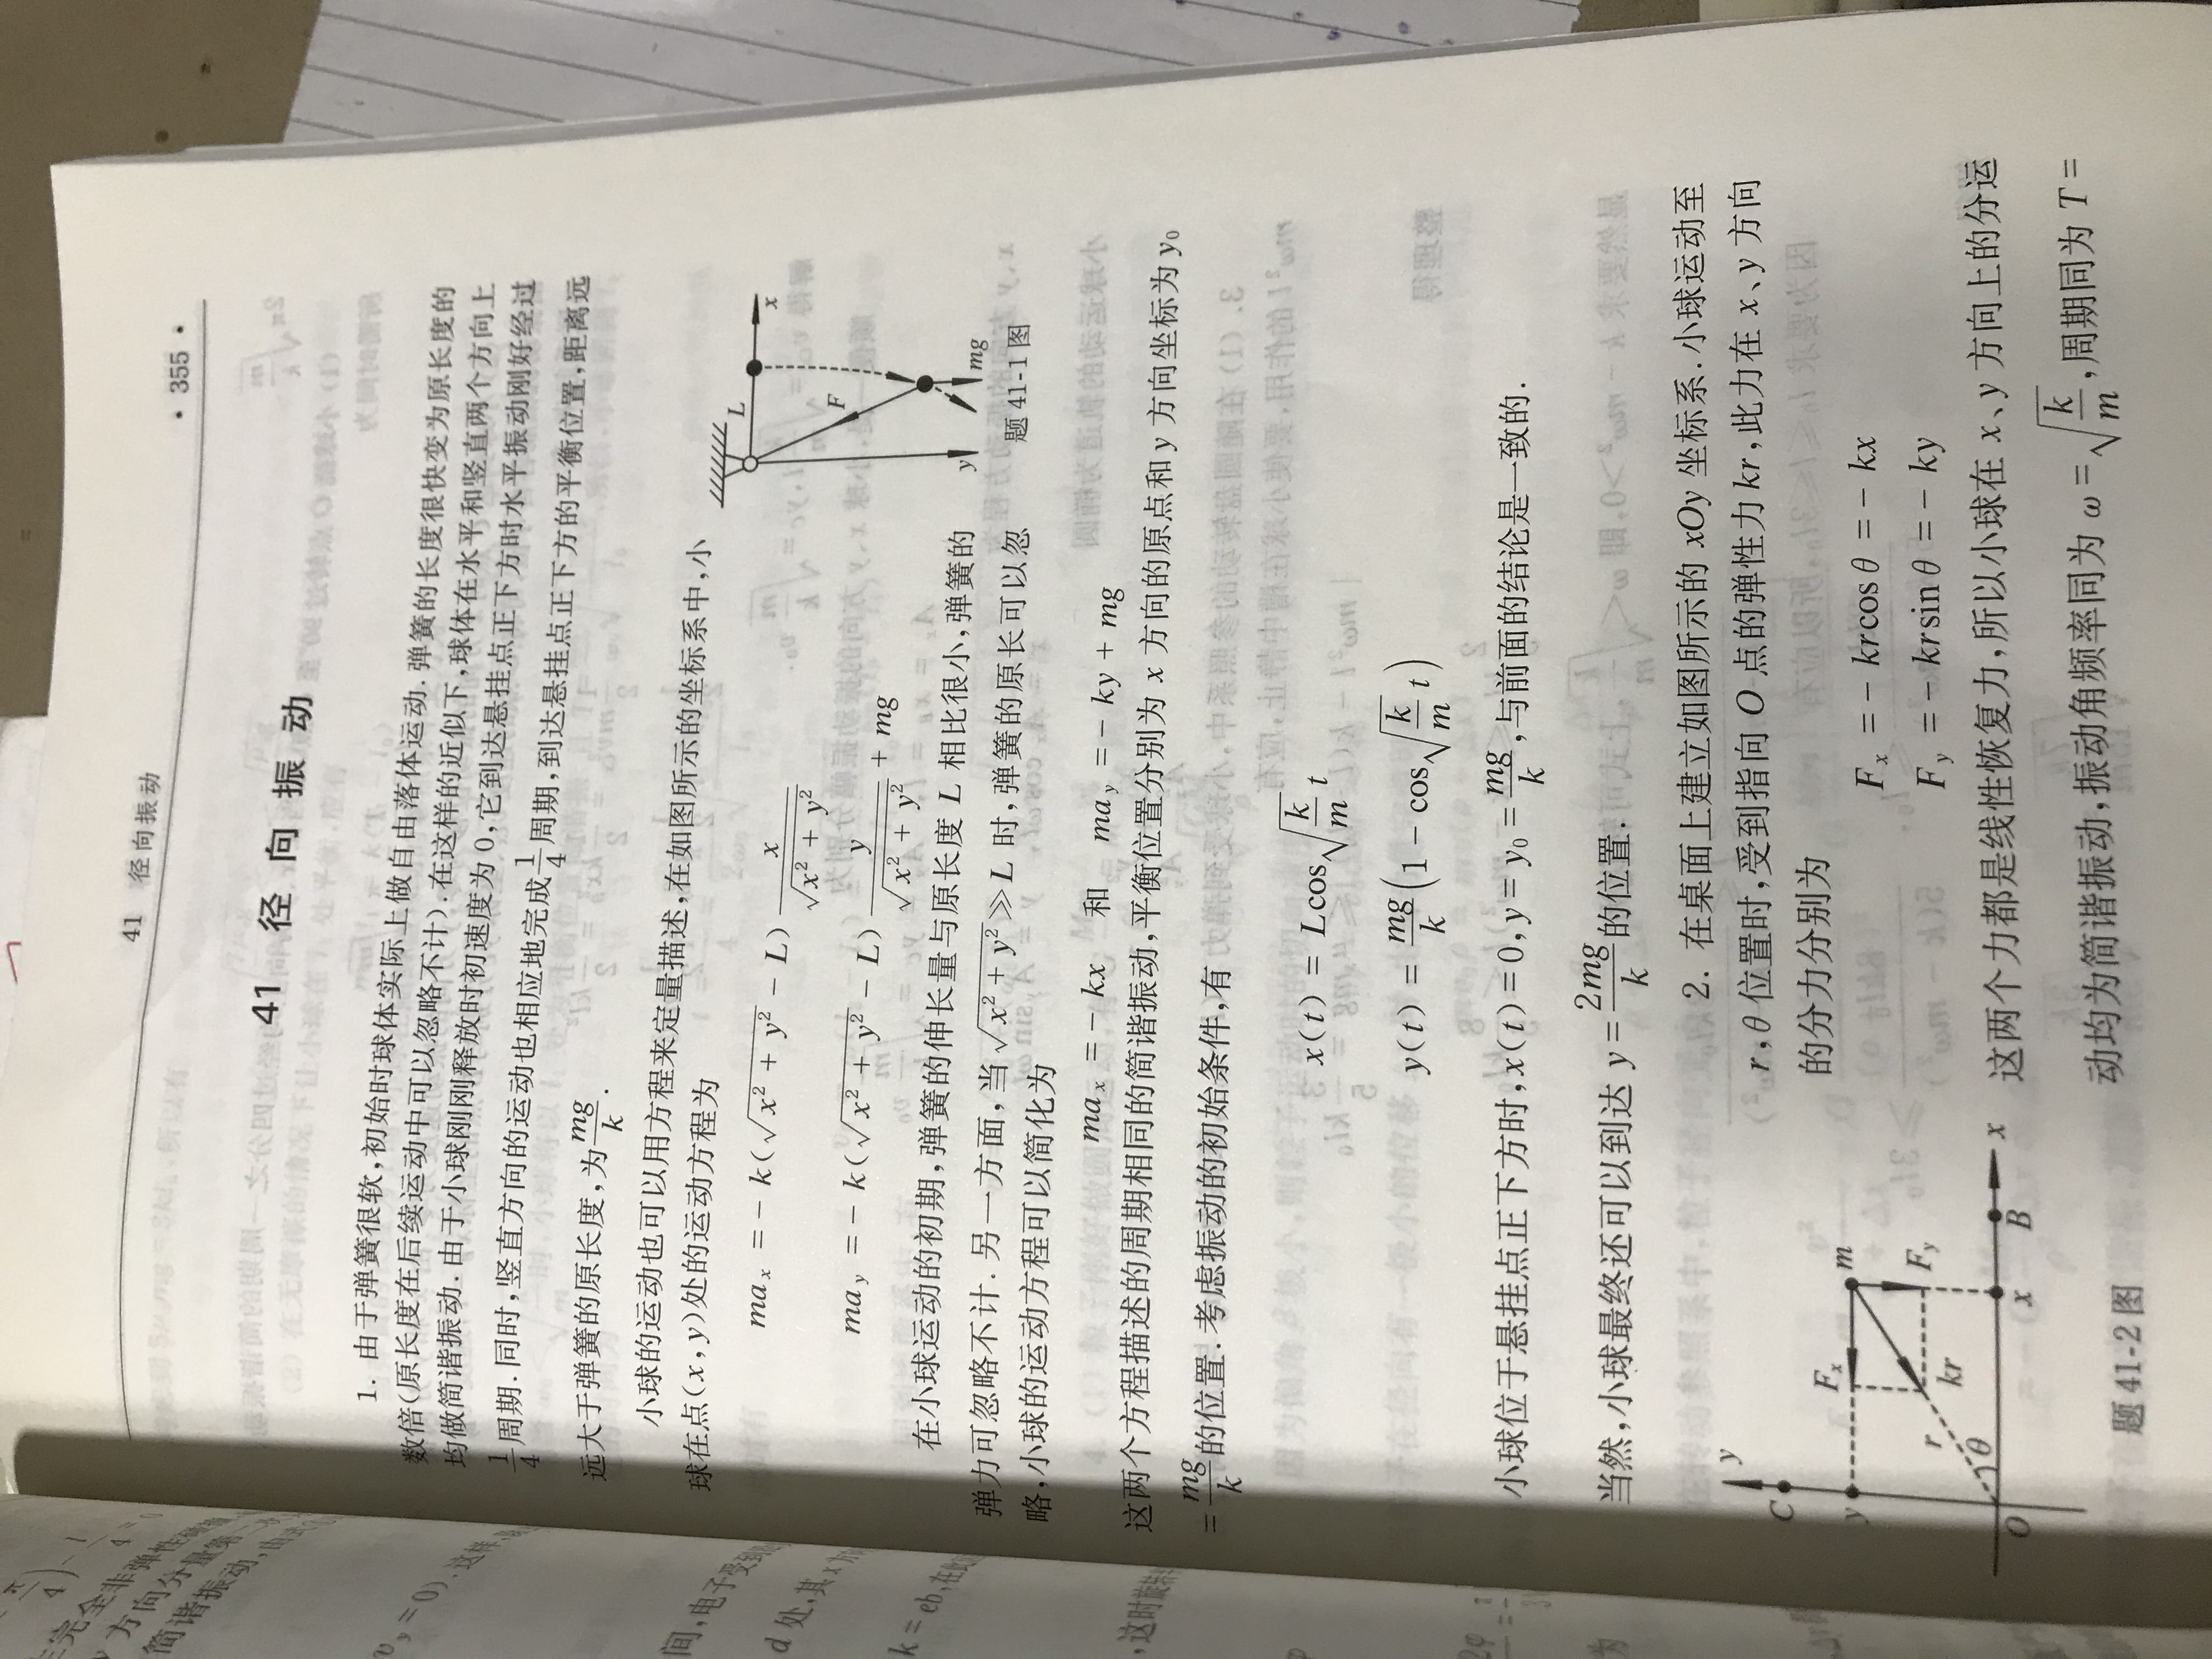 41 径向振动
· 355 ·
41 径 向 振 动
1. 由于弹簧很软,初始时球体实际上做自由落体运动.弹簧的长度很快变为原长度的
数倍(原长度在后续运动中可以忽略不计).在这样的近似下,球体在水平和竖直两个方向上
均做简谐振动.由于小球刚刚释放时初速度为 0,它到达悬挂点正下方时水平振动刚好经过
1/4 周期.同时,竖直方向的运动也相应地完成 1/4 周期,到达悬挂点正下方的平衡位置,距离远
远大于弹簧的原长度,为 mg/k .
小球的运动也可以用方程来定量描述,在如图所示的坐标系中,小
球在点(x,y)处的运动方程为
ma_x = - k(√(x² + y²) - L) x/√(x² + y²)
ma_y = - k(√(x² + y²) - L) y/√(x² + y²) + mg
L
x
F
mg
y
题 41-1 图
在小球运动的初期,弹簧的伸长量与原长度 L 相比很小,弹簧的
弹力可忽略不计.另一方面,当 √(x² + y²) ≫ L 时,弹簧的原长可以忽
略,小球的运动方程可以简化为
ma_x = - kx 和 ma_y = - ky + mg
这两个方程描述的周期相同的简谐振动,平衡位置分别为 x 方向的原点和 y 方向坐标为 y₀
= mg/k 的位置.考虑振动的初始条件,有
x(t) = Lcos√(k/m) t
y(t) = mg/k (1 - cos√(k/m) t)
小球位于悬挂点正下方时,x(t) = 0,y = y₀ = mg/k,与前面的结论是一致的.
当然,小球最终还可以到达 y = 2mg/k 的位置.
2. 在桌面上建立如图所示的 xOy 坐标系.小球运动至
r,θ 位置时,受到指向 O 点的弹性力 kr,此力在 x、y 方向
的分力分别为
F_x = - krcos θ = - kx
F_y = - krsin θ = - ky
这两个力都是线性恢复力,所以小球在 x、y 方向上的分运
动均为简谐振动,振动角频率同为 ω = √(k/m),周期同为 T =
y
C
y
F_x
m
F_y
kr
r
θ
O
x
B
x
题 41-2 图
间,电子受到
d 处,其 x 方
k = eb,在此
,这时旋转